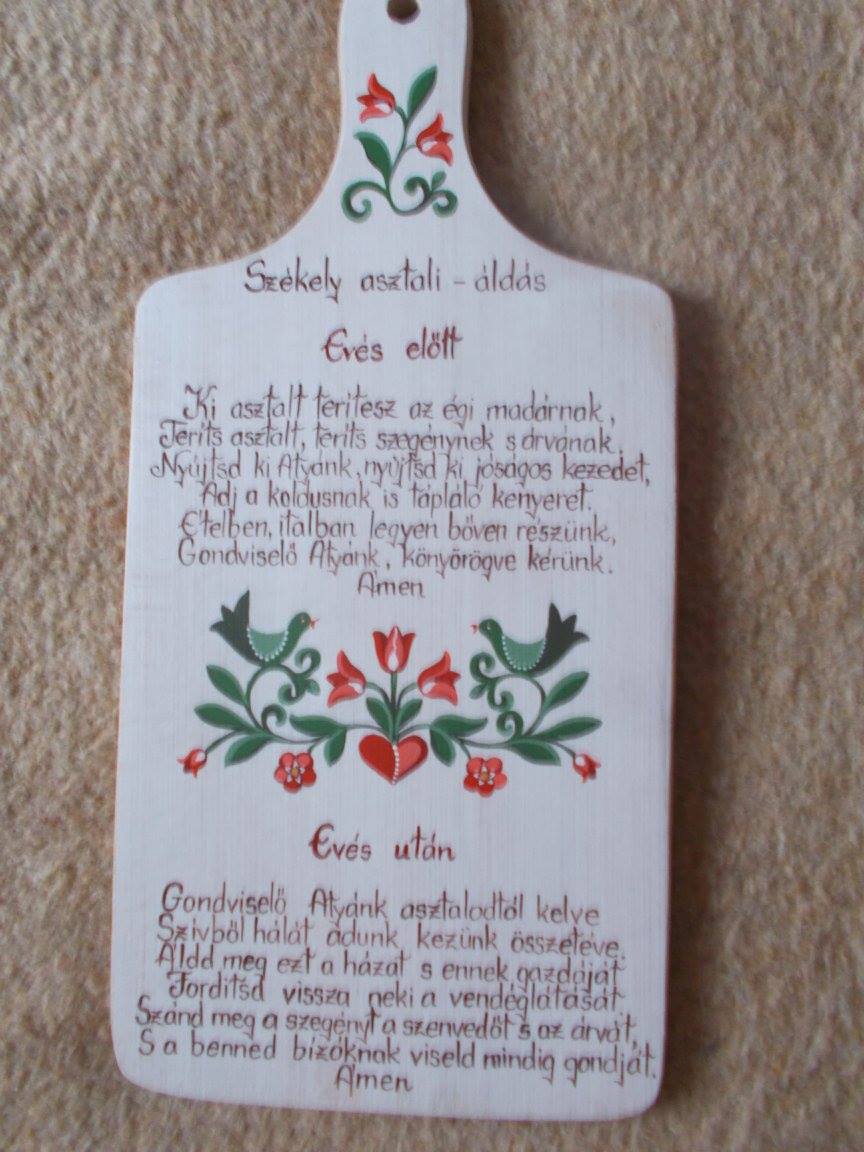 Székely asztali - áldás
Evés előtt
Ki asztalt terítesz az égi madárnak,
Teríts asztalt, teríts szegénynek s árvának.
Nyújtsd ki Atyánk, nyújtsd ki jóságos kezedet,
Adj a koldusnak is tápláló kenyeret.
Ételben, italban legyen bőven részünk,
Gondviselő Atyánk, könyörögve kérünk.
Ámen
Evés után
Gondviselő Atyánk asztalodtól kelve
Szívből hálát adunk kezünk összetéve.
Áldd meg ezt a házat s ennek gazdáját
Fordítsd vissza neki a vendéglátását
Szánd meg a szegényt a szenvedőt s az árvát,
S a benned bízóknak viseld mindig gondját.
Ámen